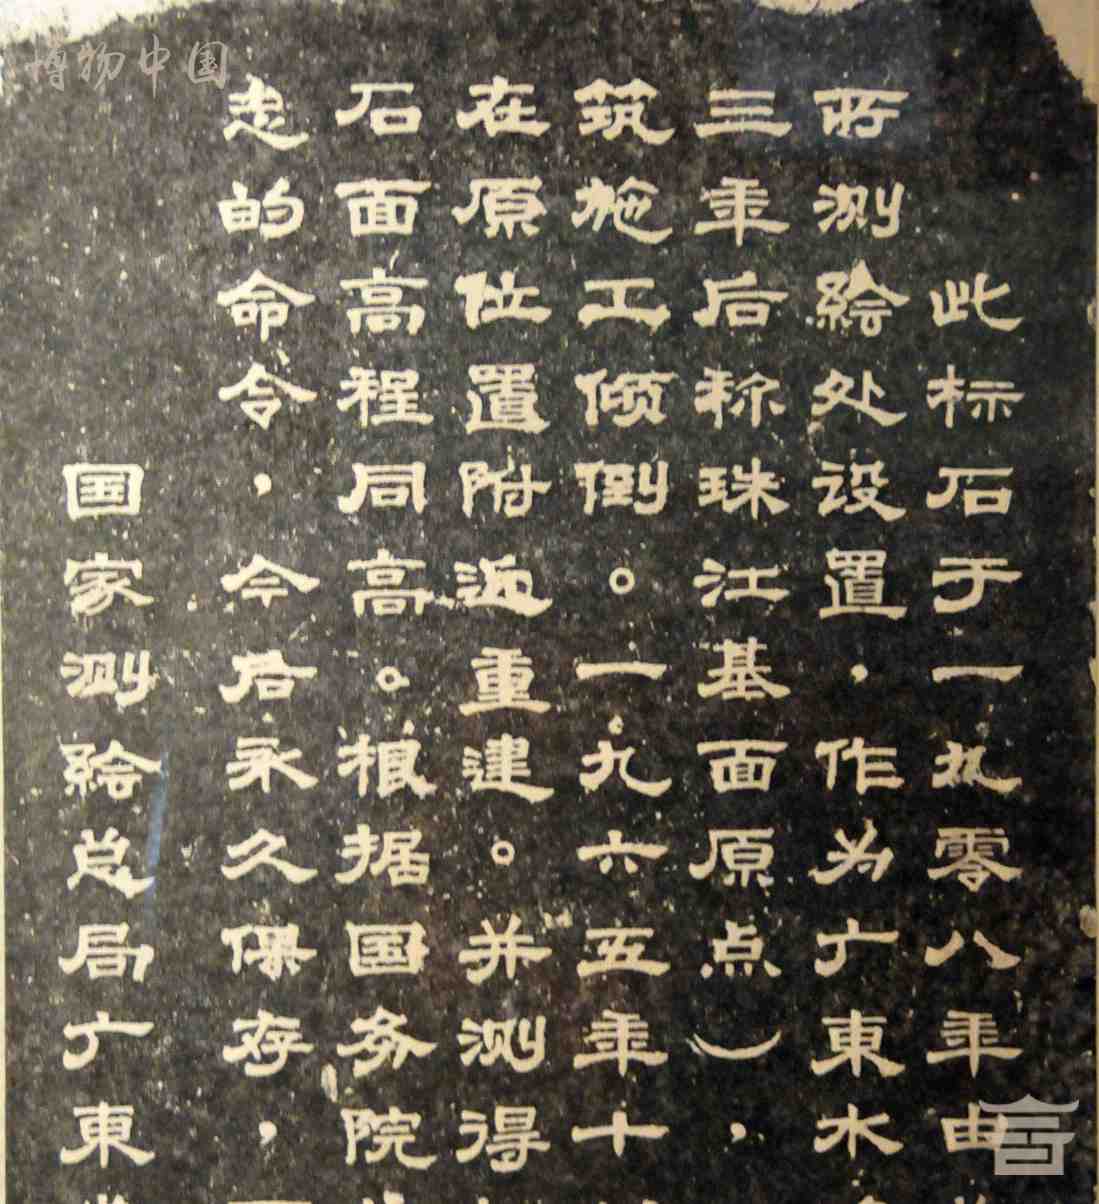 博物中国
此标石于一九零八年由
所测繪处设置，作为广東水
三年后称珠江基面原点），
筑施工倾倒。一九六五年十
在原位置附近重建。并测得
石面高程同高。根据国务院
志的命令，今后永久保存，
国家测繪总局广東